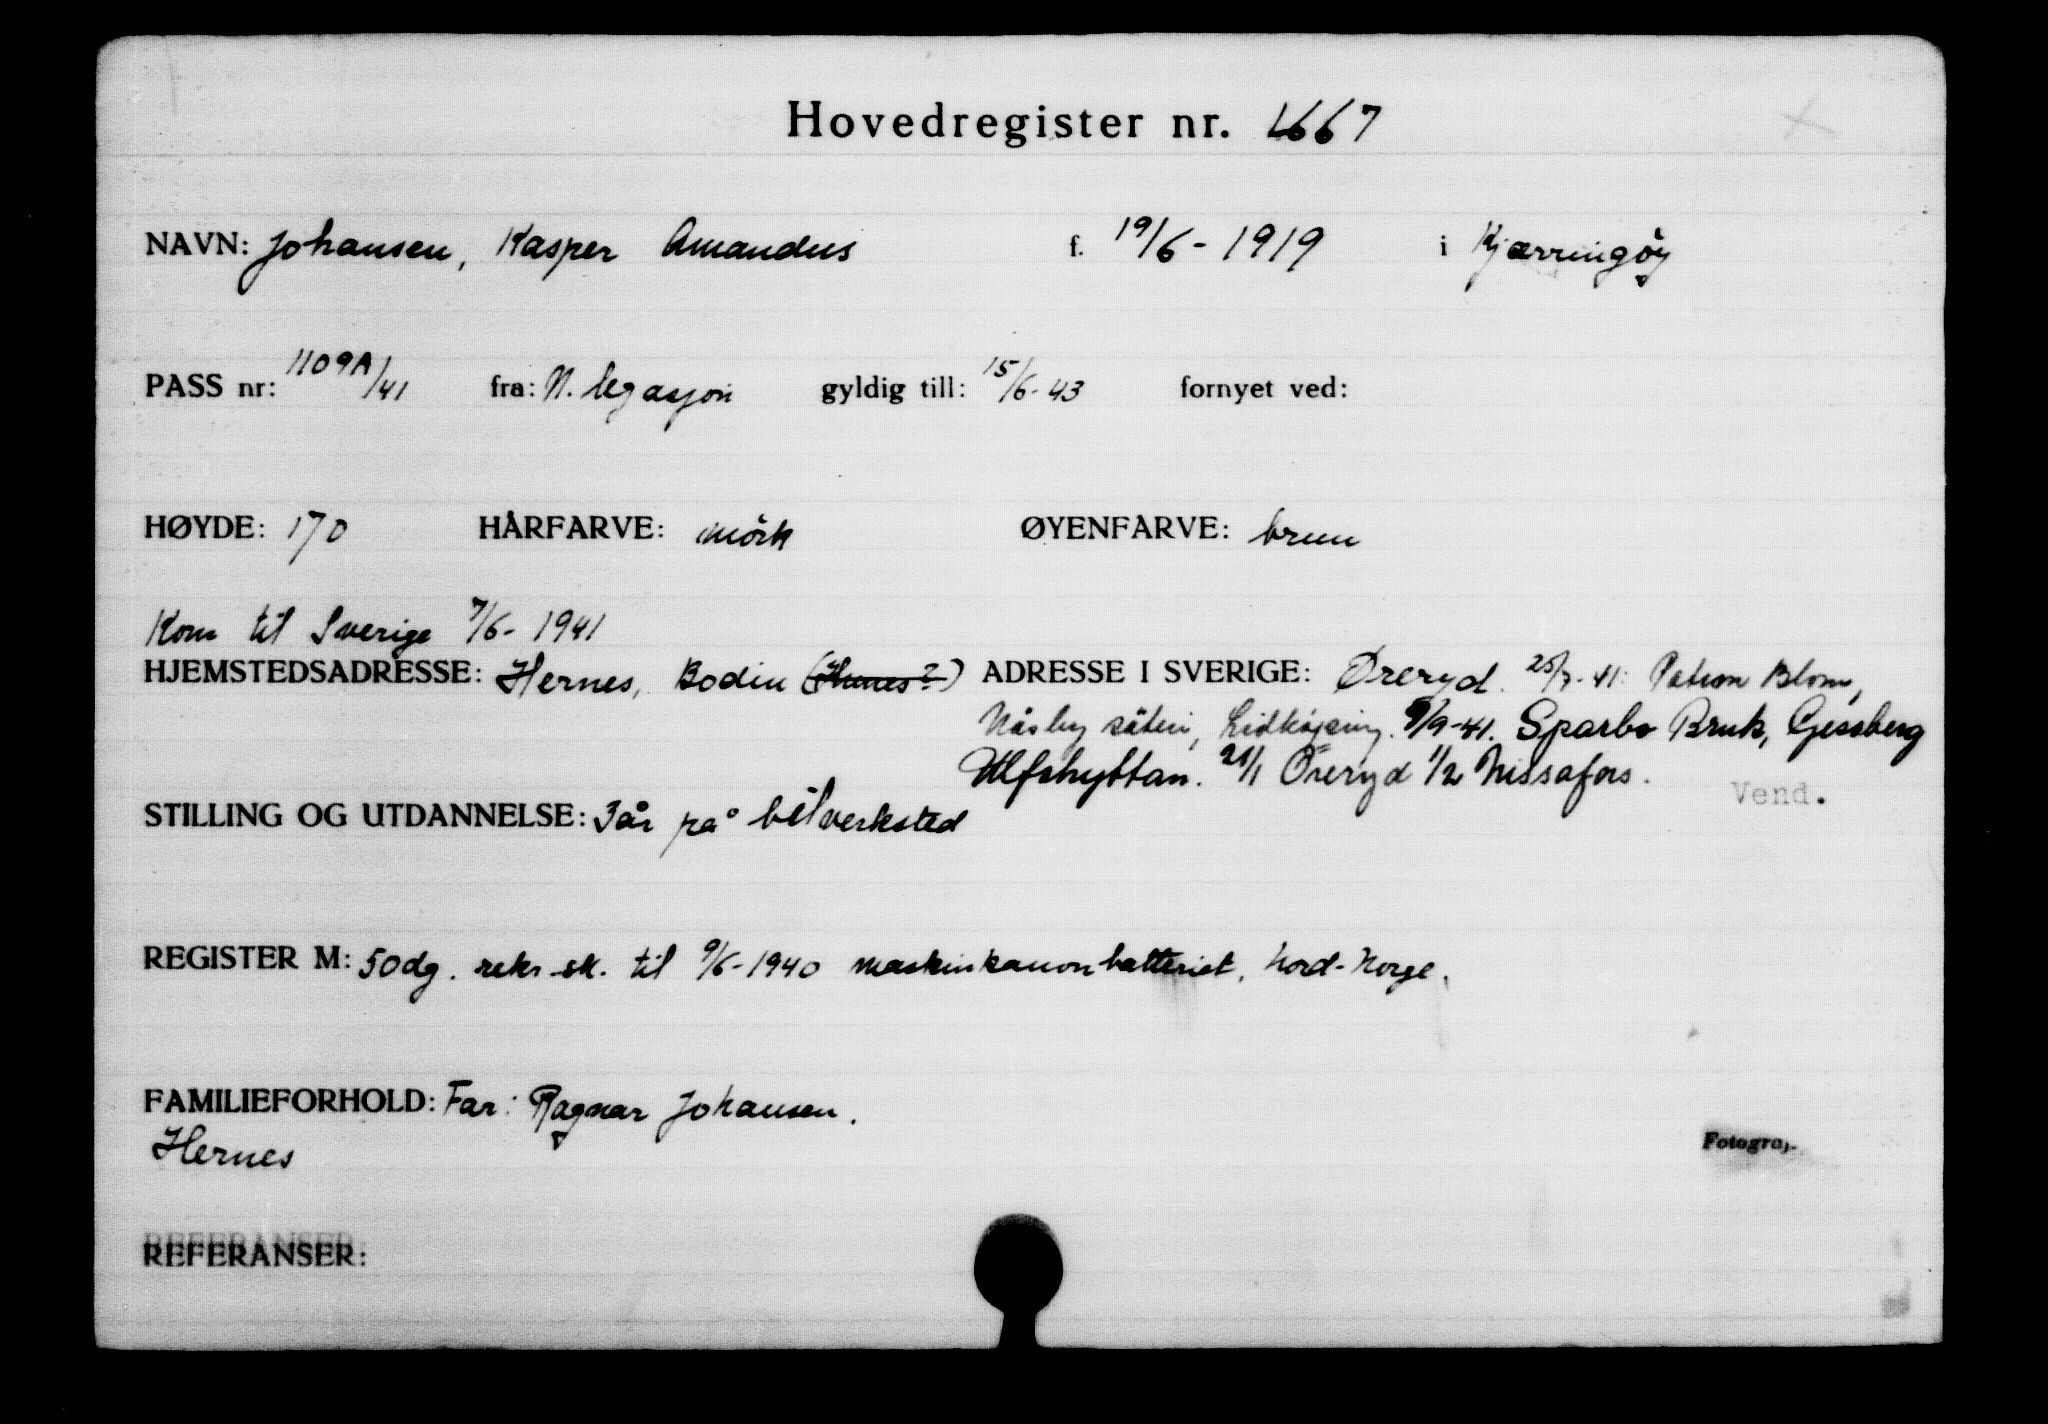 Hovedregister nr. 1667
NAVN: Johansen, Kasper Amandus f. 19/6-1919 i Kjærringöy
PASS nr: 1109A/41 fra: N. legasjon gyldig till: 15/6-43 fornyet ved:
HØYDE: 170 HÅRFARVE: mörk ØYENFARVE: brun
Kom til Sverige 7/6-1941
HJEMSTEDSADRESSE: Hernes, Bodin (Hunes?) ADRESSE I SVERIGE: Öreryd. 25/7-41: Patron Blom,
Näsby säteri, Lidköping. 9/9-41. Sparbo Bruk, Gessberg
Ulfshyttan. 21/1 Öreryd 1/2 Nissafors.
Vend.
STILLING OG UTDANNELSE: 3 år på bilverksted
REGISTER M: 50 dg. rekr-sk. til 9/6-1940 maskinkanonbatteriet, Nord-Norge.
FAMILIEFORHOLD: Far: Ragnar Johansen.
Hernes
Fotogra
REFERANSER: